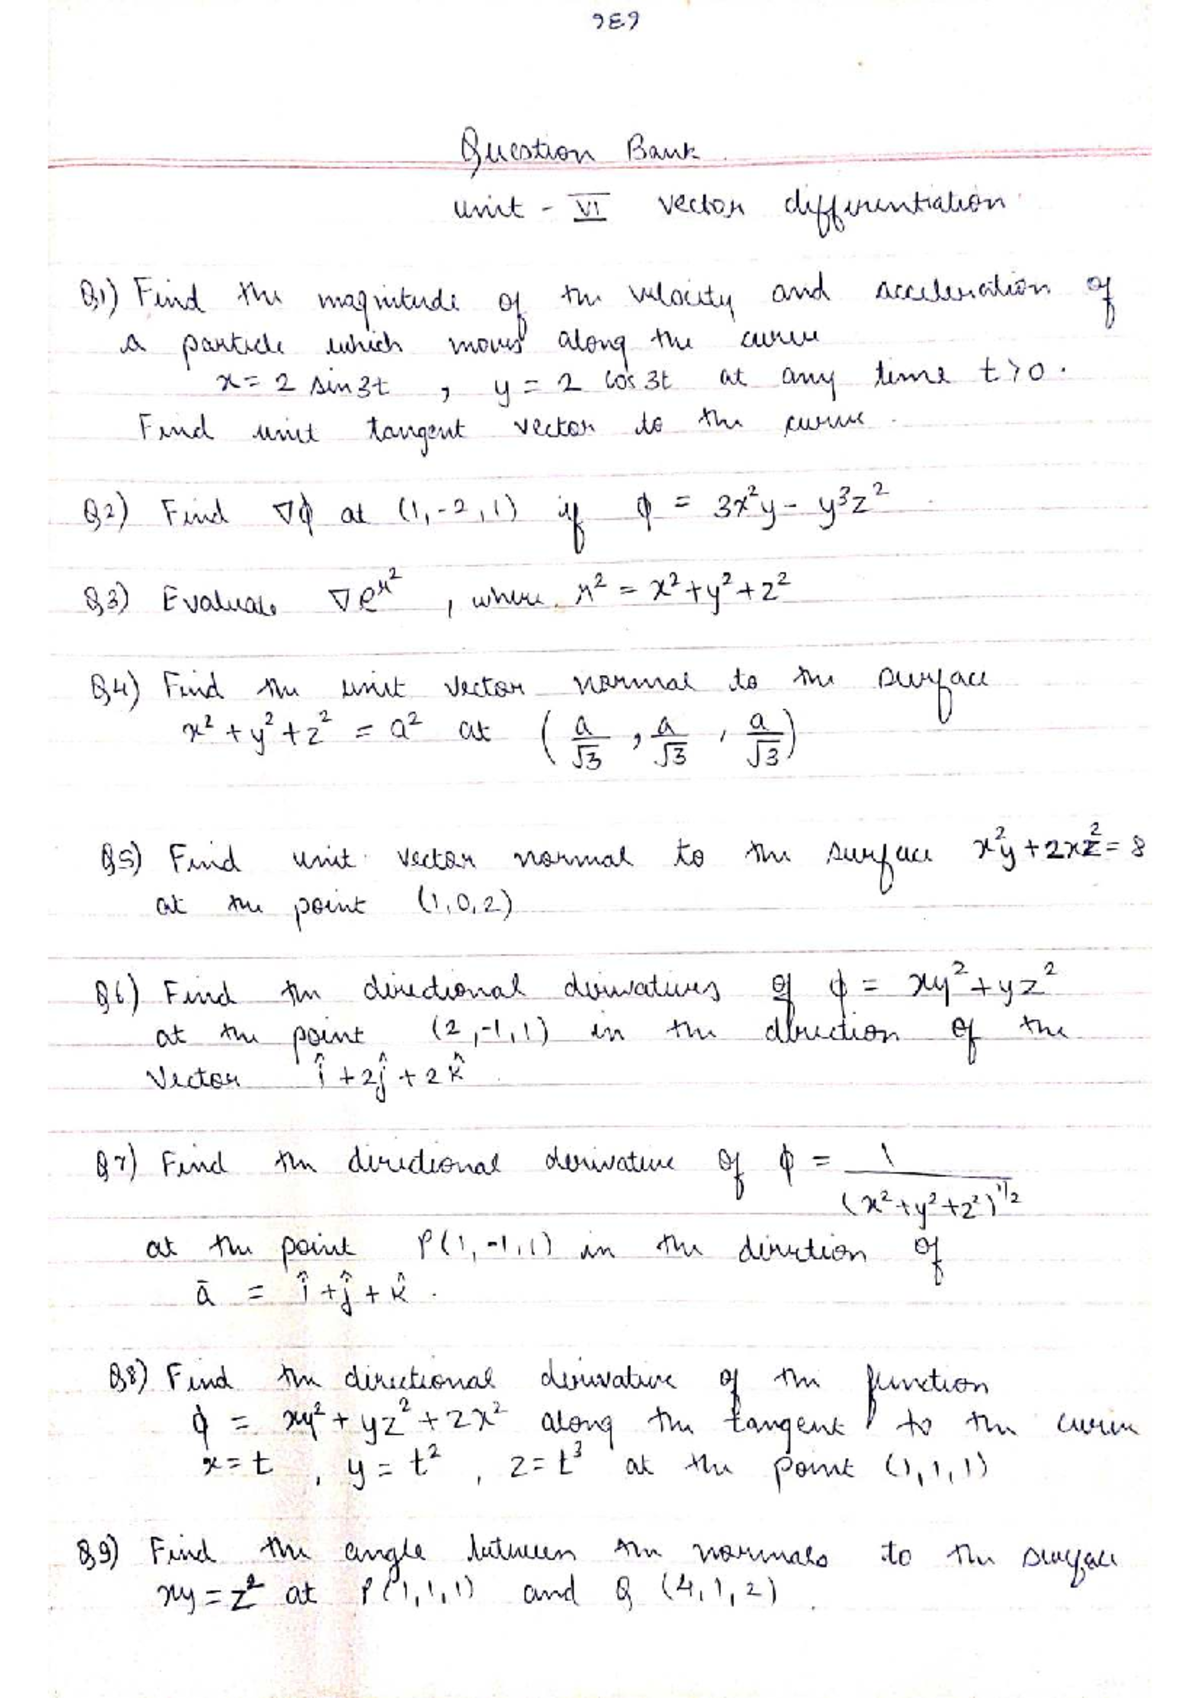 Question Bank
unit - VI vector differentiation
Q1) Find the magnitude of the velocity and acceleration of
a particle which moves along the curve
x = 2 sin 3t , y = 2 cos 3t at any time t > 0 .
Find unit tangent vector to the curve .
Q2) Find ∇ϕ at (1, -2, 1) if ϕ = 3x²y - y³z² .
Q3) Evaluate ∇e^r² , where r² = x² + y² + z²
Q4) Find the unit vector normal to the surface
x² + y² + z² = a² at (a/√3 , a/√3 , a/√3)
Q5) Find unit vector normal to the surface x²y + 2xz² = 8
at the point (1, 0, 2)
Q6) Find the directional derivatives of ϕ = xy² + yz²
at the point (2, -1, 1) in the direction of the
Vector î + 2ĵ + 2k̂
Q7) Find the directional derivative of ϕ = 1/(x² + y² + z²)^1/2
at the point P(1, -1, 1) in the direction of
ā = î + ĵ + k̂ .
Q8) Find the directional derivative of the function
ϕ = xy² + yz² + zx² along the tangent to the curve
x = t , y = t² , z = t³ at the point (1, 1, 1)
Q9) Find the angle between the normals to the surface
xy = z² at P(1, 1, 1) and Q (4, 1, 2) .